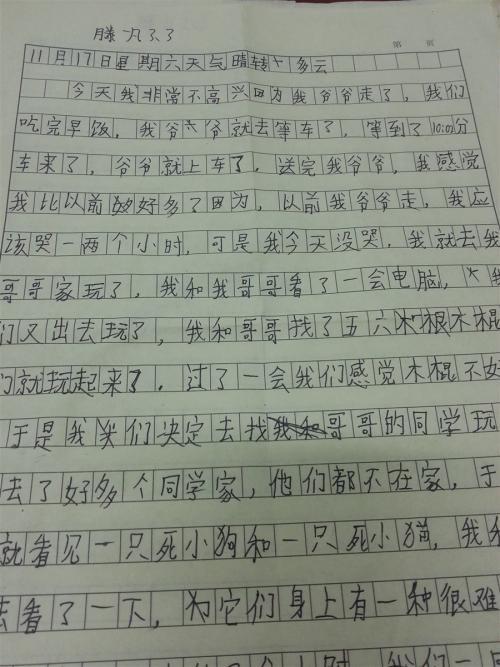 滕九3.3
第 页
11月17日星期六天气晴转多云
今天我非常不高兴因为我爷爷走了，我们
吃完早饭，我爷爷就去等车了，等到了10:00分
车来了，爷爷就上车了，送完我爷爷，我感觉
我比以前好多了因为，以前我爷爷走，我应
该哭一两个小时，可是我今天没哭，我就去我
哥哥家玩了，我和我哥哥看了一会电脑，我
们又出去玩了，我和哥哥找了五六根木棍
们就玩起来了．过了一会我们感觉木棍不好
于是我们决定去找哥哥的同学玩
去了好多个同学家，他们都不在家，于
就看见一只死小狗和一只死小猫，我和
去看了一下，它们身上有一种很难
个小时 我们一